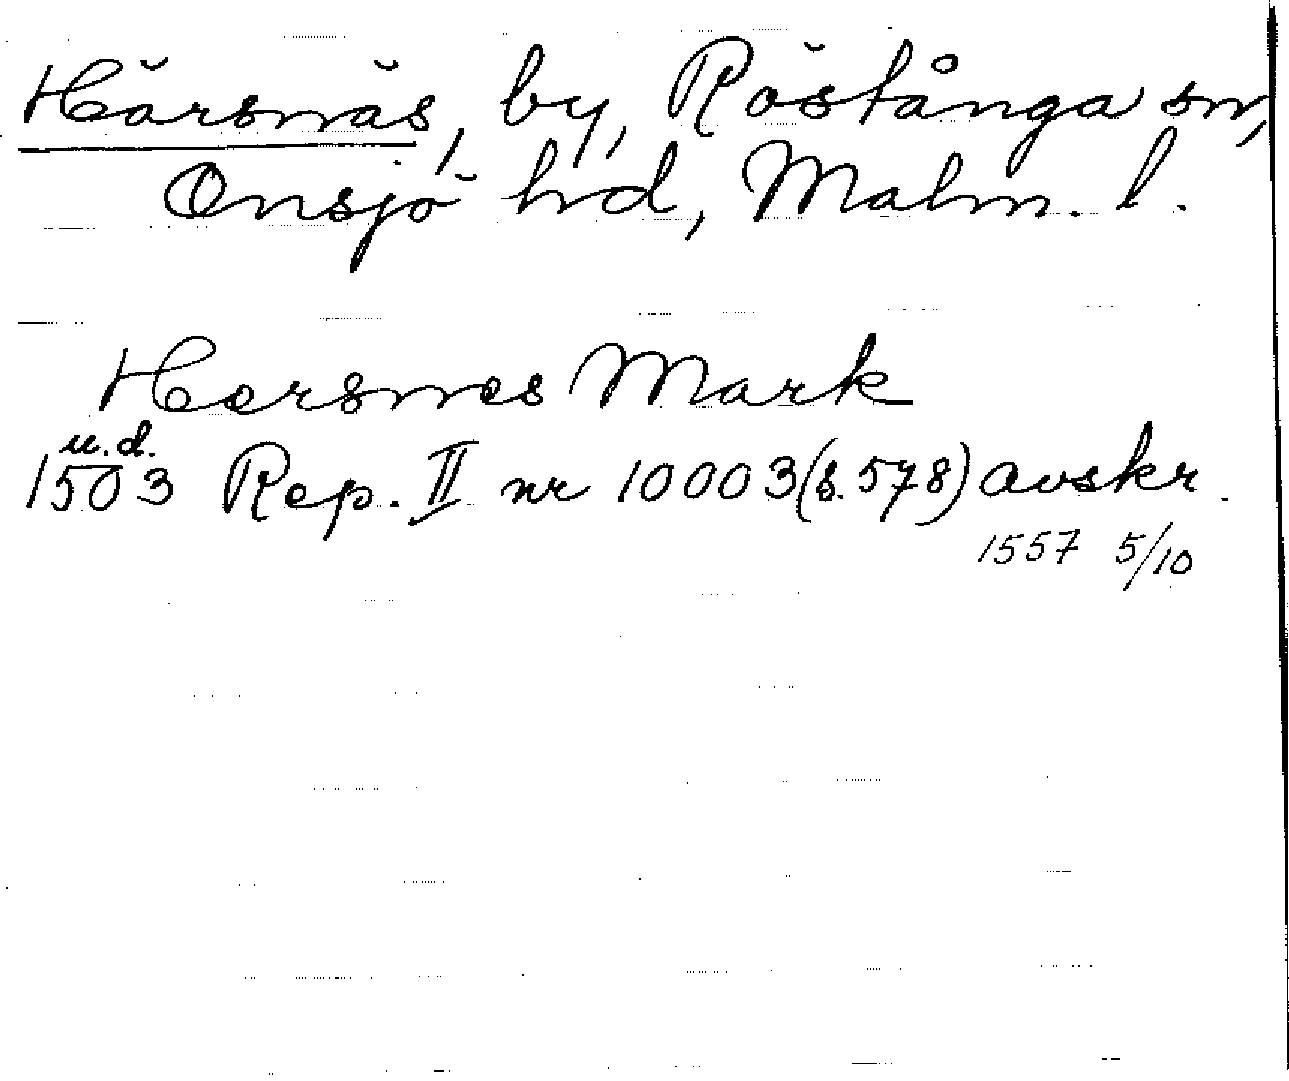 Härsnäs, by, Röstånga sn,
Onsjö hd, Malm. l.
Hersnes Mark
u.d.
1503 Rep. II nr 10003 (s. 578) avskr.
1557 5/10